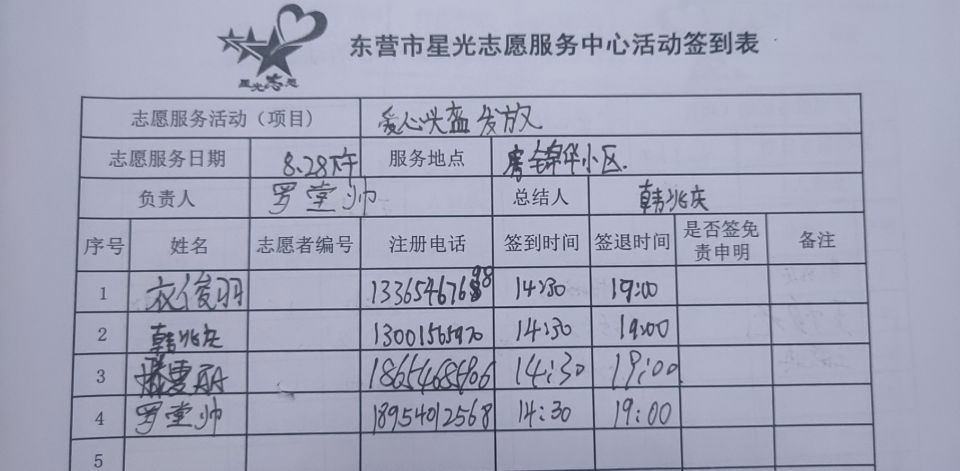 星光志愿
东营市星光志愿服务中心活动签到表
志愿服务活动（项目） 爱心 发放
志愿服务日期 8.28下午 服务地点 锦华小区.
负责人 罗堂帅 总结人 韩兆庆
序号 姓名 志愿者编号 注册电话 签到时间 签退时间 是否签免责申明 备注
1 衣俊羽 14:30 19:00
2 韩兆庆 13001565970 14:30 19:00
3 18654684906 14:30 19:00
4 罗堂帅 18954012568 14:30 19:00
5